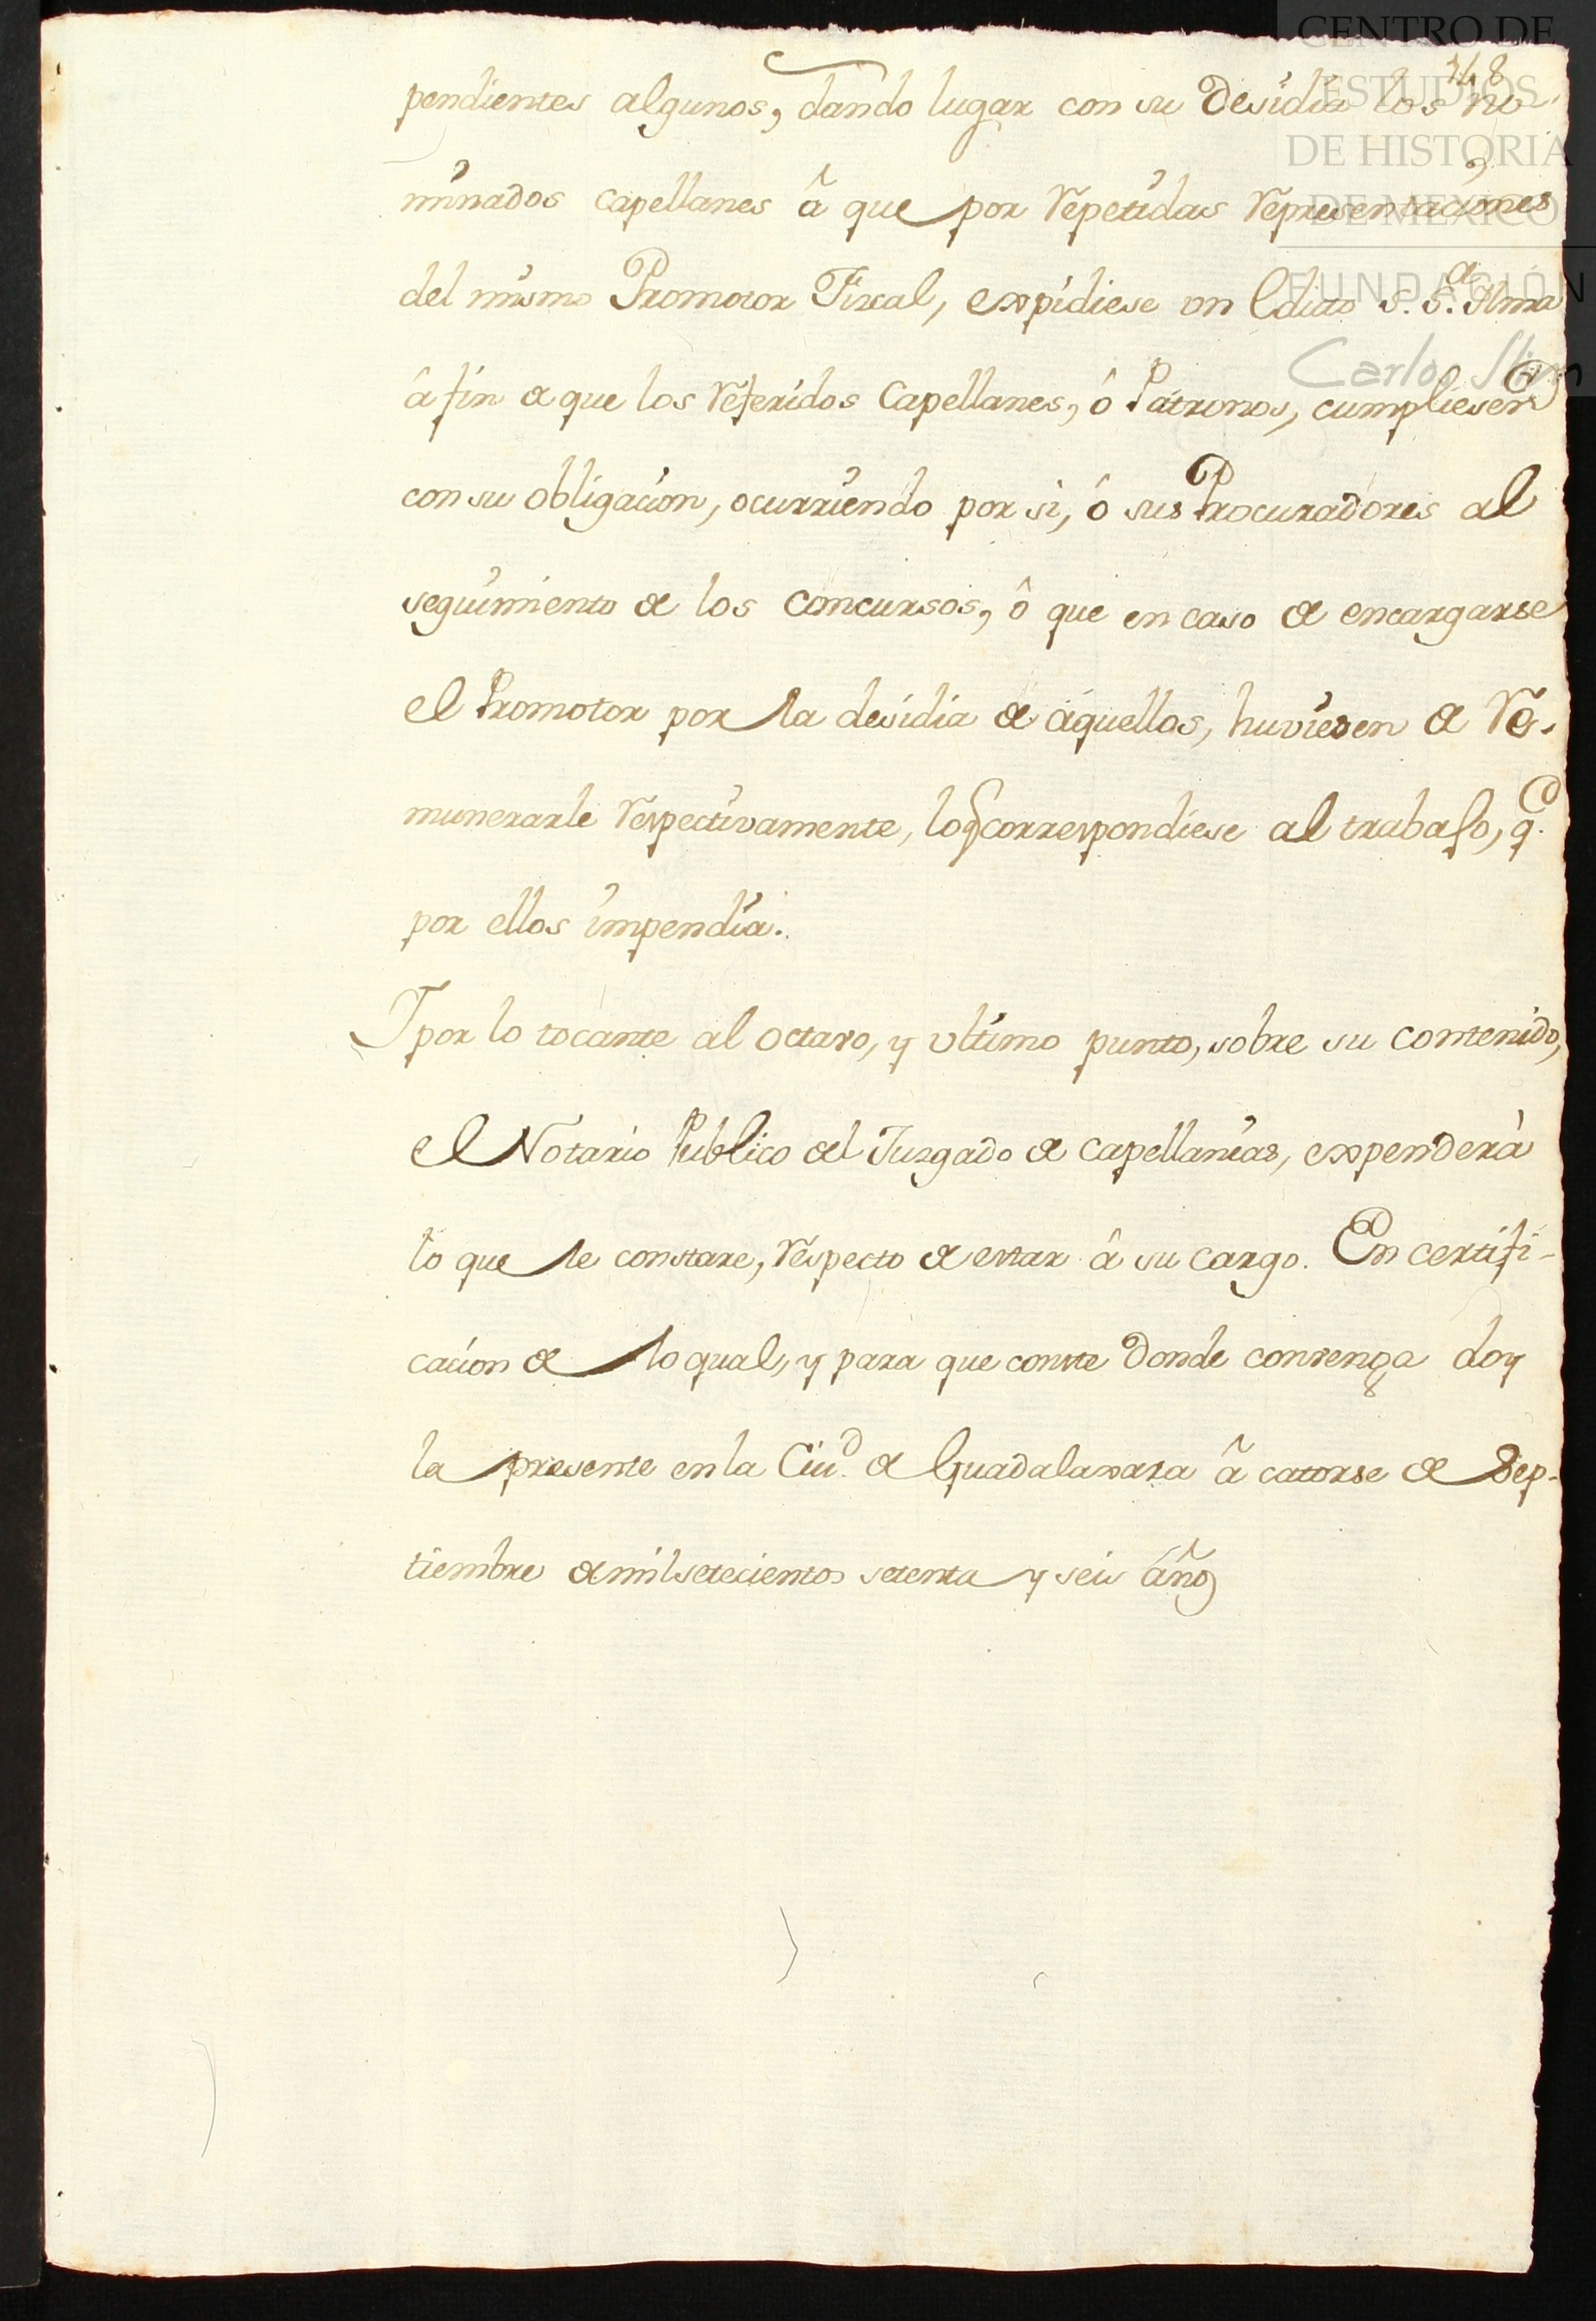 CENTRO DE
ESTUDIOS
DE HISTORIA
DE MEXICO
FUNDACIÓN
Carlos Slim
348
pendientes algunos, dando lugar con su Desidia los no-
minados Capellanes â que por repetidas representaciones
del mismo Promotor Fiscal, expidiese un Edicto S. S.ª Ilma
â fin de que los referidos Capellanes, ô Patronos, cumpliesen
con su obligacion, ocurriendo por si, ô sus Procuradores al
seguimiento de los Concursos, ô que en caso de encargarse
el Promotor por la desidia de aquellos, huviesen de re-
munerarle respectivamente, lo q correspondiese al trabajo, q.
por ellos impendia.
Y por lo tocante al octavo, y ultimo punto, sobre su contenido,
el Notario Publico del Juzgado de Capellanias, expenderà
lo que le constare, respecto de estar â su cargo. En certifi-
cacion de lo qual, y para que conste donde convenga doy
la presente en la Ciu.d de Guadalaxara â catorse de Sep-
tiembre de mil setecientos setenta y seis años